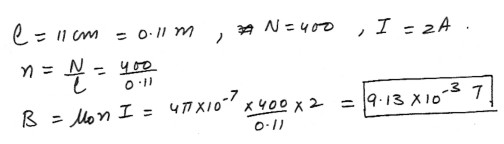 l = 11 cm = 0.11 m , N = 400 , I = 2A .
n = N/l = 400/0.11
B = μ₀ n I = 4π×10⁻⁷ × 400/0.11 × 2 = 9.13 × 10⁻³ T